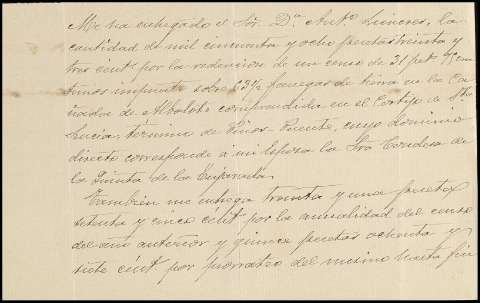 Me ha entregado el Sr. Dn. Antº Linares, la
cantidad de mil cincuenta y ocho pesetas treinta y
tres cént. por la redencion de un censo de 31 pts 75 cen
timos impuesto sobre 23½ fanegas de tierra en la Ca
ñada de Albolote comprendida en el Cortijo de Sta
Lucia, término de Pinos-Puente, cuyo dominio
directo corresponde á mi esposa la Sra Condesa de
la Quinta de la Enjarada.
Tambien me entrega treinta y una pesetas
setenta y cinco cént. por la anualidad del censo
del año anterior y quince pesetas ochenta y
siete cént. por prorrateo del mismo hasta fin